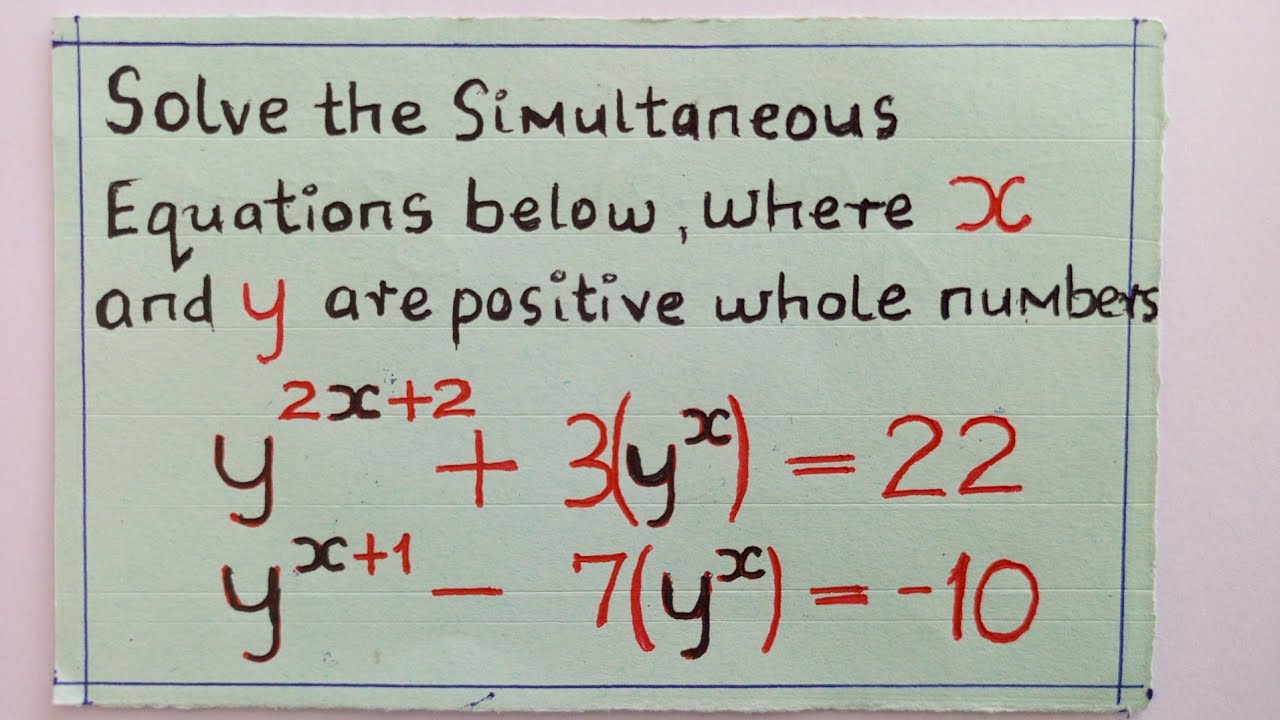 Solve the Simultaneous
Equations below, where x
and y are positive whole numbers
y^{2x+2} + 3(y^x) = 22
y^{x+1} - 7(y^x) = -10